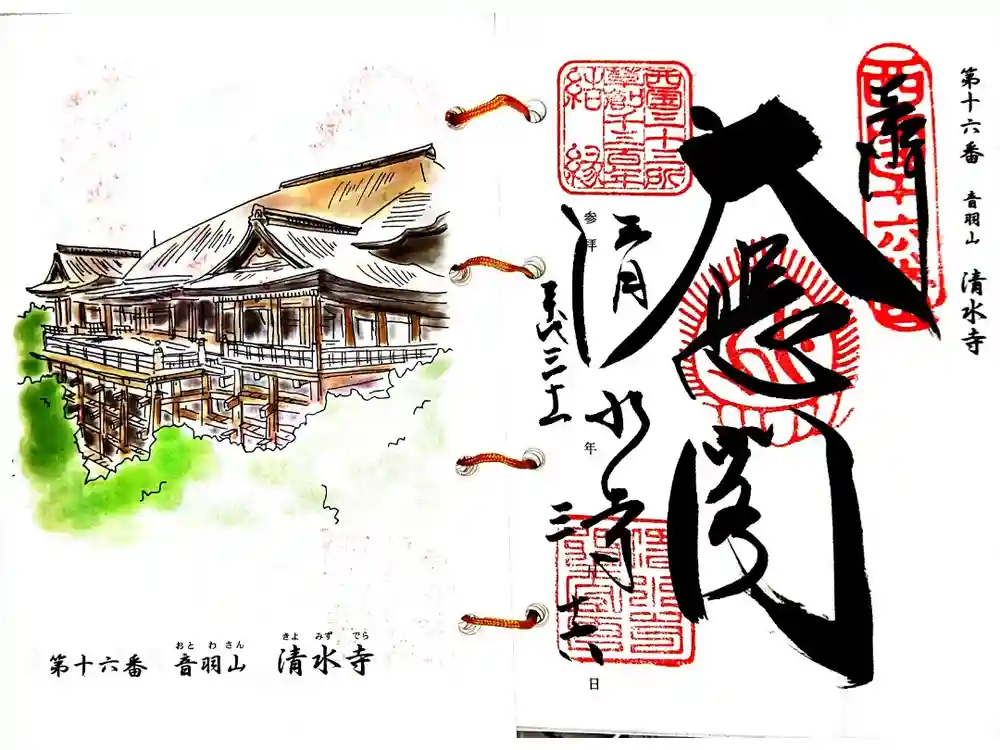 おとわさん きよみずでら
第十六番 音羽山 清水寺
第十六番 音羽山 清水寺
大悲閣
清水寺
西国三十三所
草創千三百年
結縁
参拝 平成三十一年三月十六日